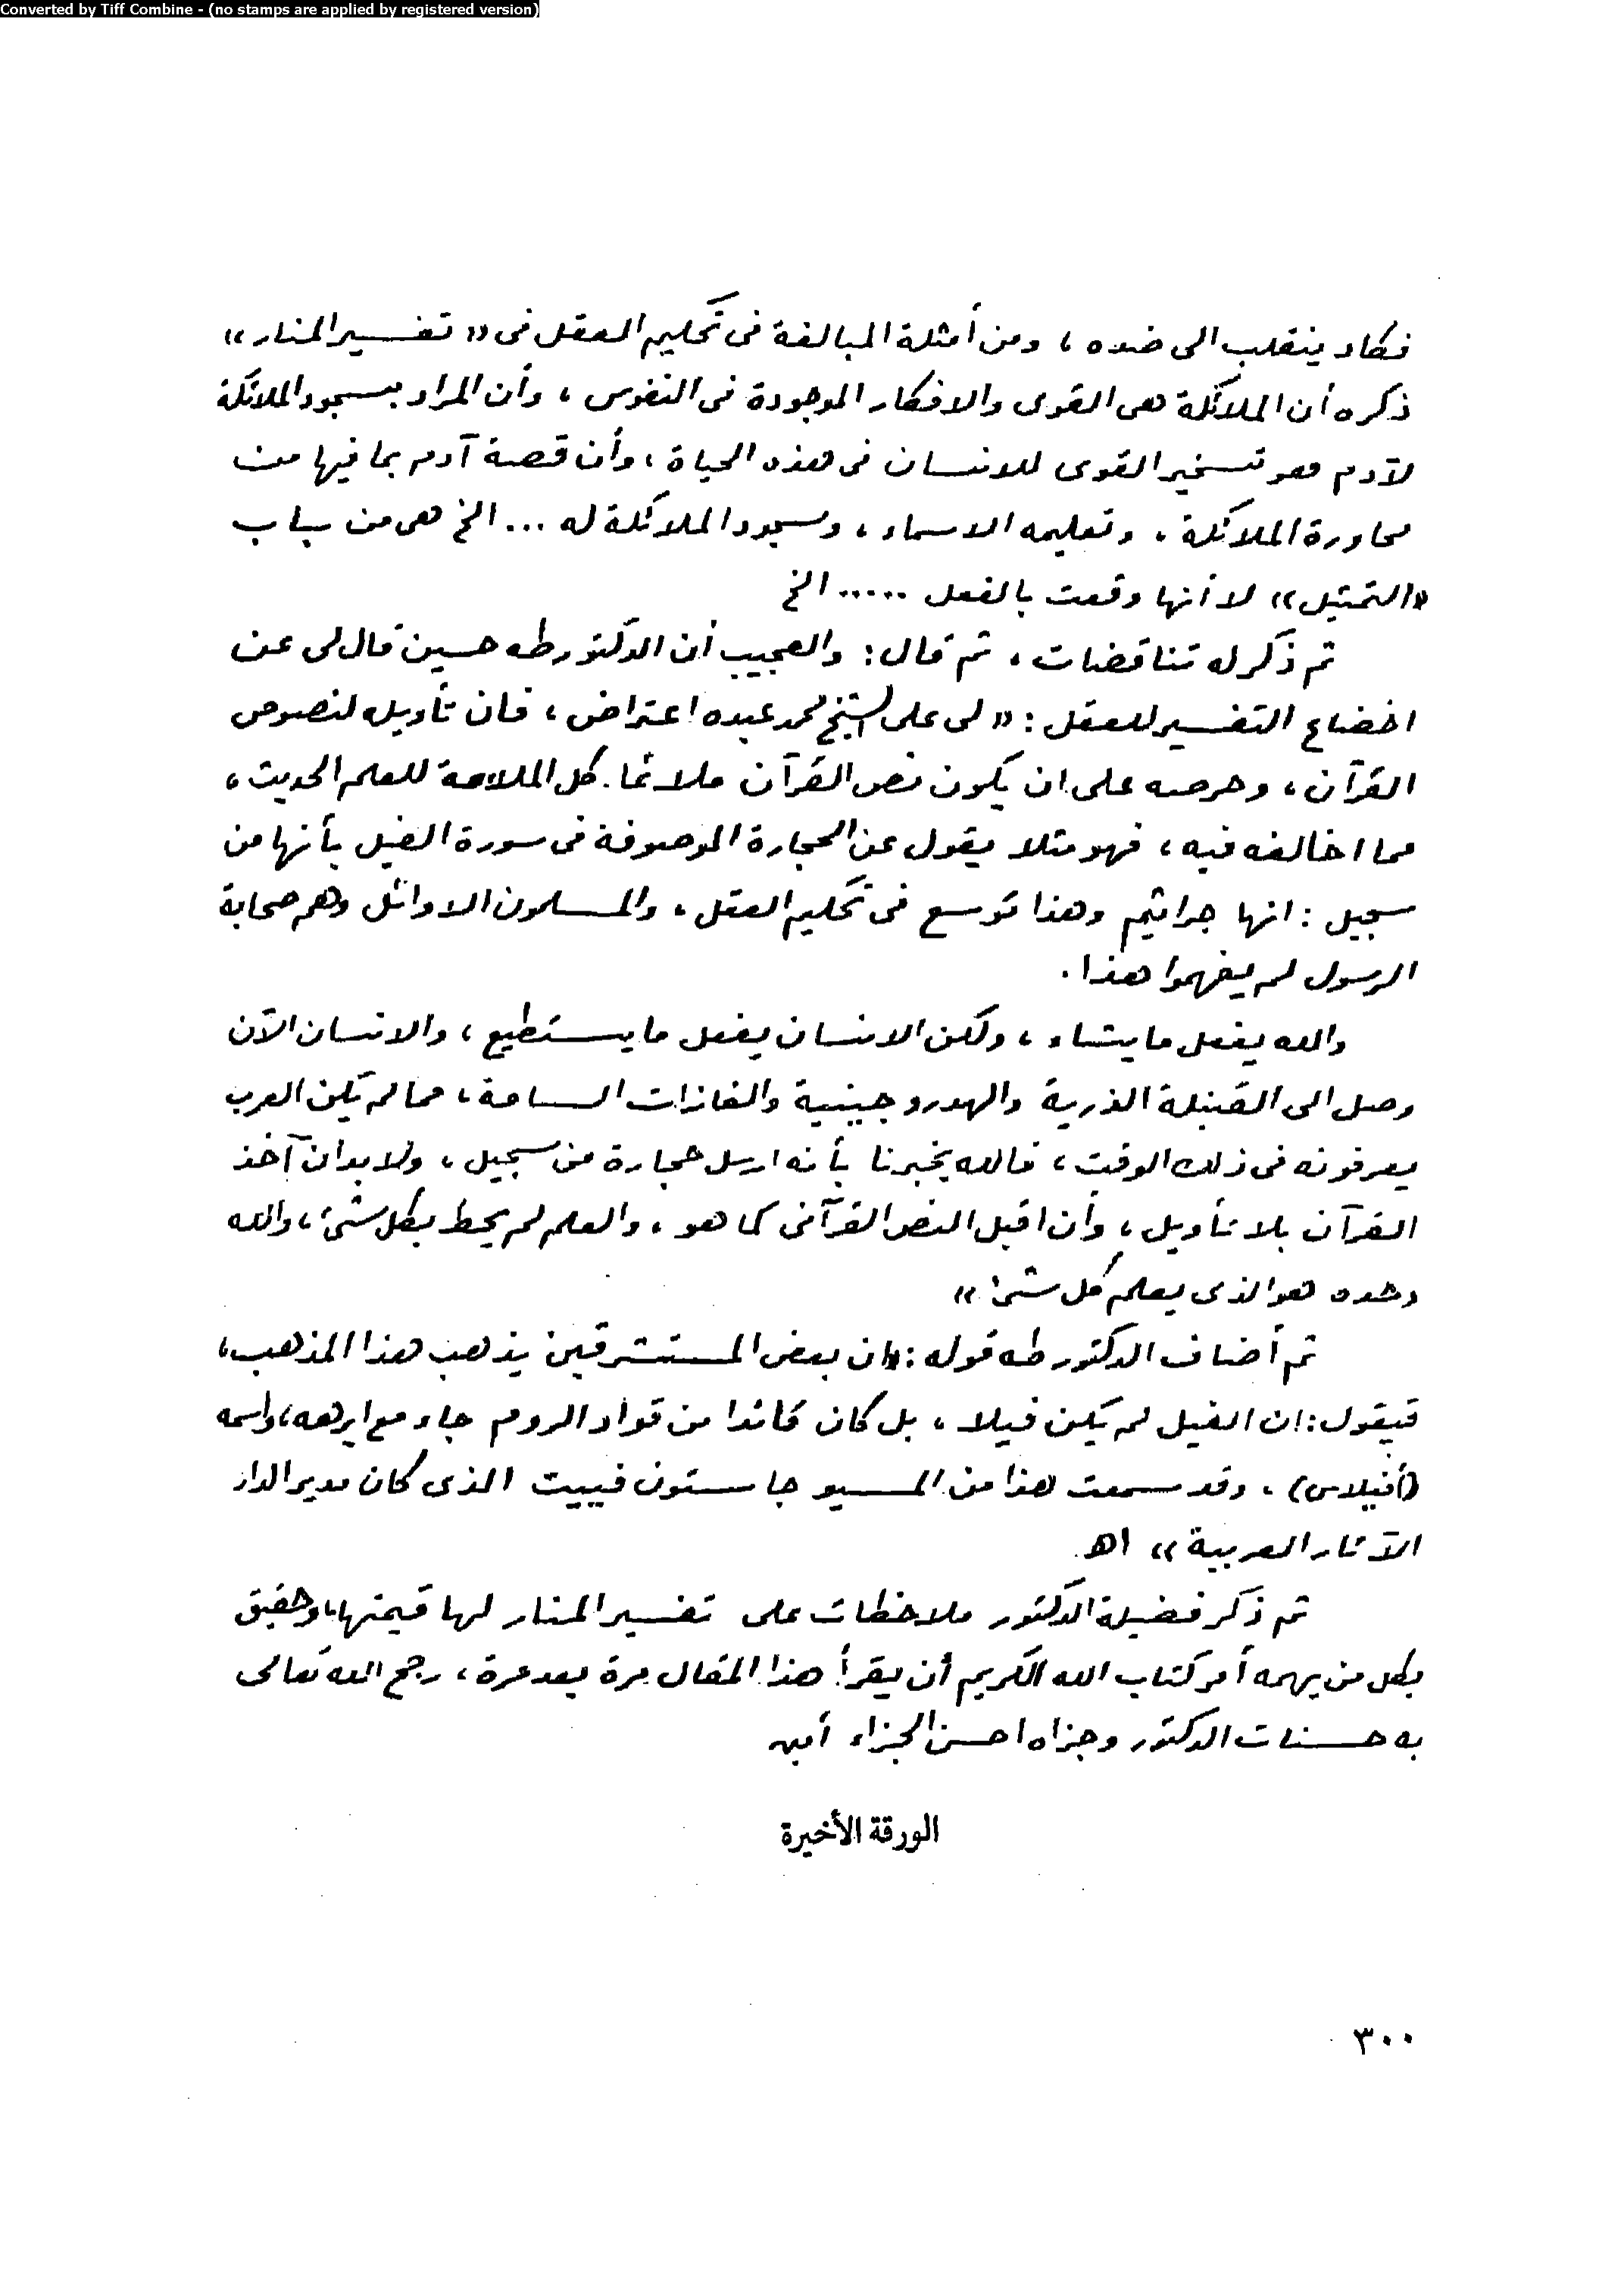 Converted by Tiff Combine - (no stamps are applied by registered version)
فكاد ينقلب الى ضده ، ومن أمثلة المبالغة فى تحكيم العقل فى « تفسير المنار »
ذكره أن الملائكة هى القوى والافكار الموجودة فى النفوس ، وأن المراد بسجود الملائكة
لآدم هو تسخير القوى للانسان فى هذه الحياة ، وأن قصة آدم بما فيها من
محاورة الملائكة ، وتعليمه الاسماء ، وسجود الملائكة له ... الخ هى من باب
«التمثيل» لا أنها وقعت بالفعل ..... الخ
ثم ذكر له تناقضات ، ثم قال : والعجيب أن الدكتور طه حسين قال لى عن
اخضاع التفسير للعقل : « لى على الشيخ محمد عبده اعتراض ، فان تأويله لنصوص
القرآن ، وحرصه على ان يكون نص القرآن ملائما كل الملاءمة للعلم الحديث ،
مما اخالفه فيه ، فهو مثلا يقول عن الحجارة الموصوفة فى سورة الفيل بأنها من
سجيل : انها جراثيم وهذا توسع فى تحكيم العقل ، والمسلمون الاوائل وهم صحابة
الرسول لم يفهموا هذا .
والله يفعل ما يشاء ، ولكن الانسان يفعل ما يستطيع ، والانسان الآن
وصل الى القنبلة الذرية والهدروجينية والغازات السامة ، مما لم يكن العرب
يعرفونه فى ذلك الوقت ، فالله يخبرنا بأنه ارسل حجارة من سجيل ، ولا بد ان آخذ
القرآن بلا تأويل ، وأن اقبل النص القرآنى كما هو ، والعلم لم يحط بكل شئ ، والله
وحده هو الذى يعلم كل شئ »
ثم أضاف الدكتور طه قوله : «ان بعض المستشرقين يذهب هذا المذهب ،
فيقول : ان الفيل لم يكن فيلا ، بل كان قائدا من قواد الروم جاء مع ابرهه ، واسمه
(أفيلاس) ، وقد سمعت هذا من المسيو جاستون فييت الذى كان مديرا لدار
الآثار العربية » اهـ.
ثم ذكر فضيلة الدكتور ملاحظات على تفسير المنار لها قيمتها ، وحقيق
بكل من يهمه أمر كتاب الله الكريم أن يقرأ هذا المقال مرة بعد مرة ، رجح الله تعالى
به حسنات الدكتور وجزاه احسن الجزاء أمين
الورقة الأخيرة
٣٠٠